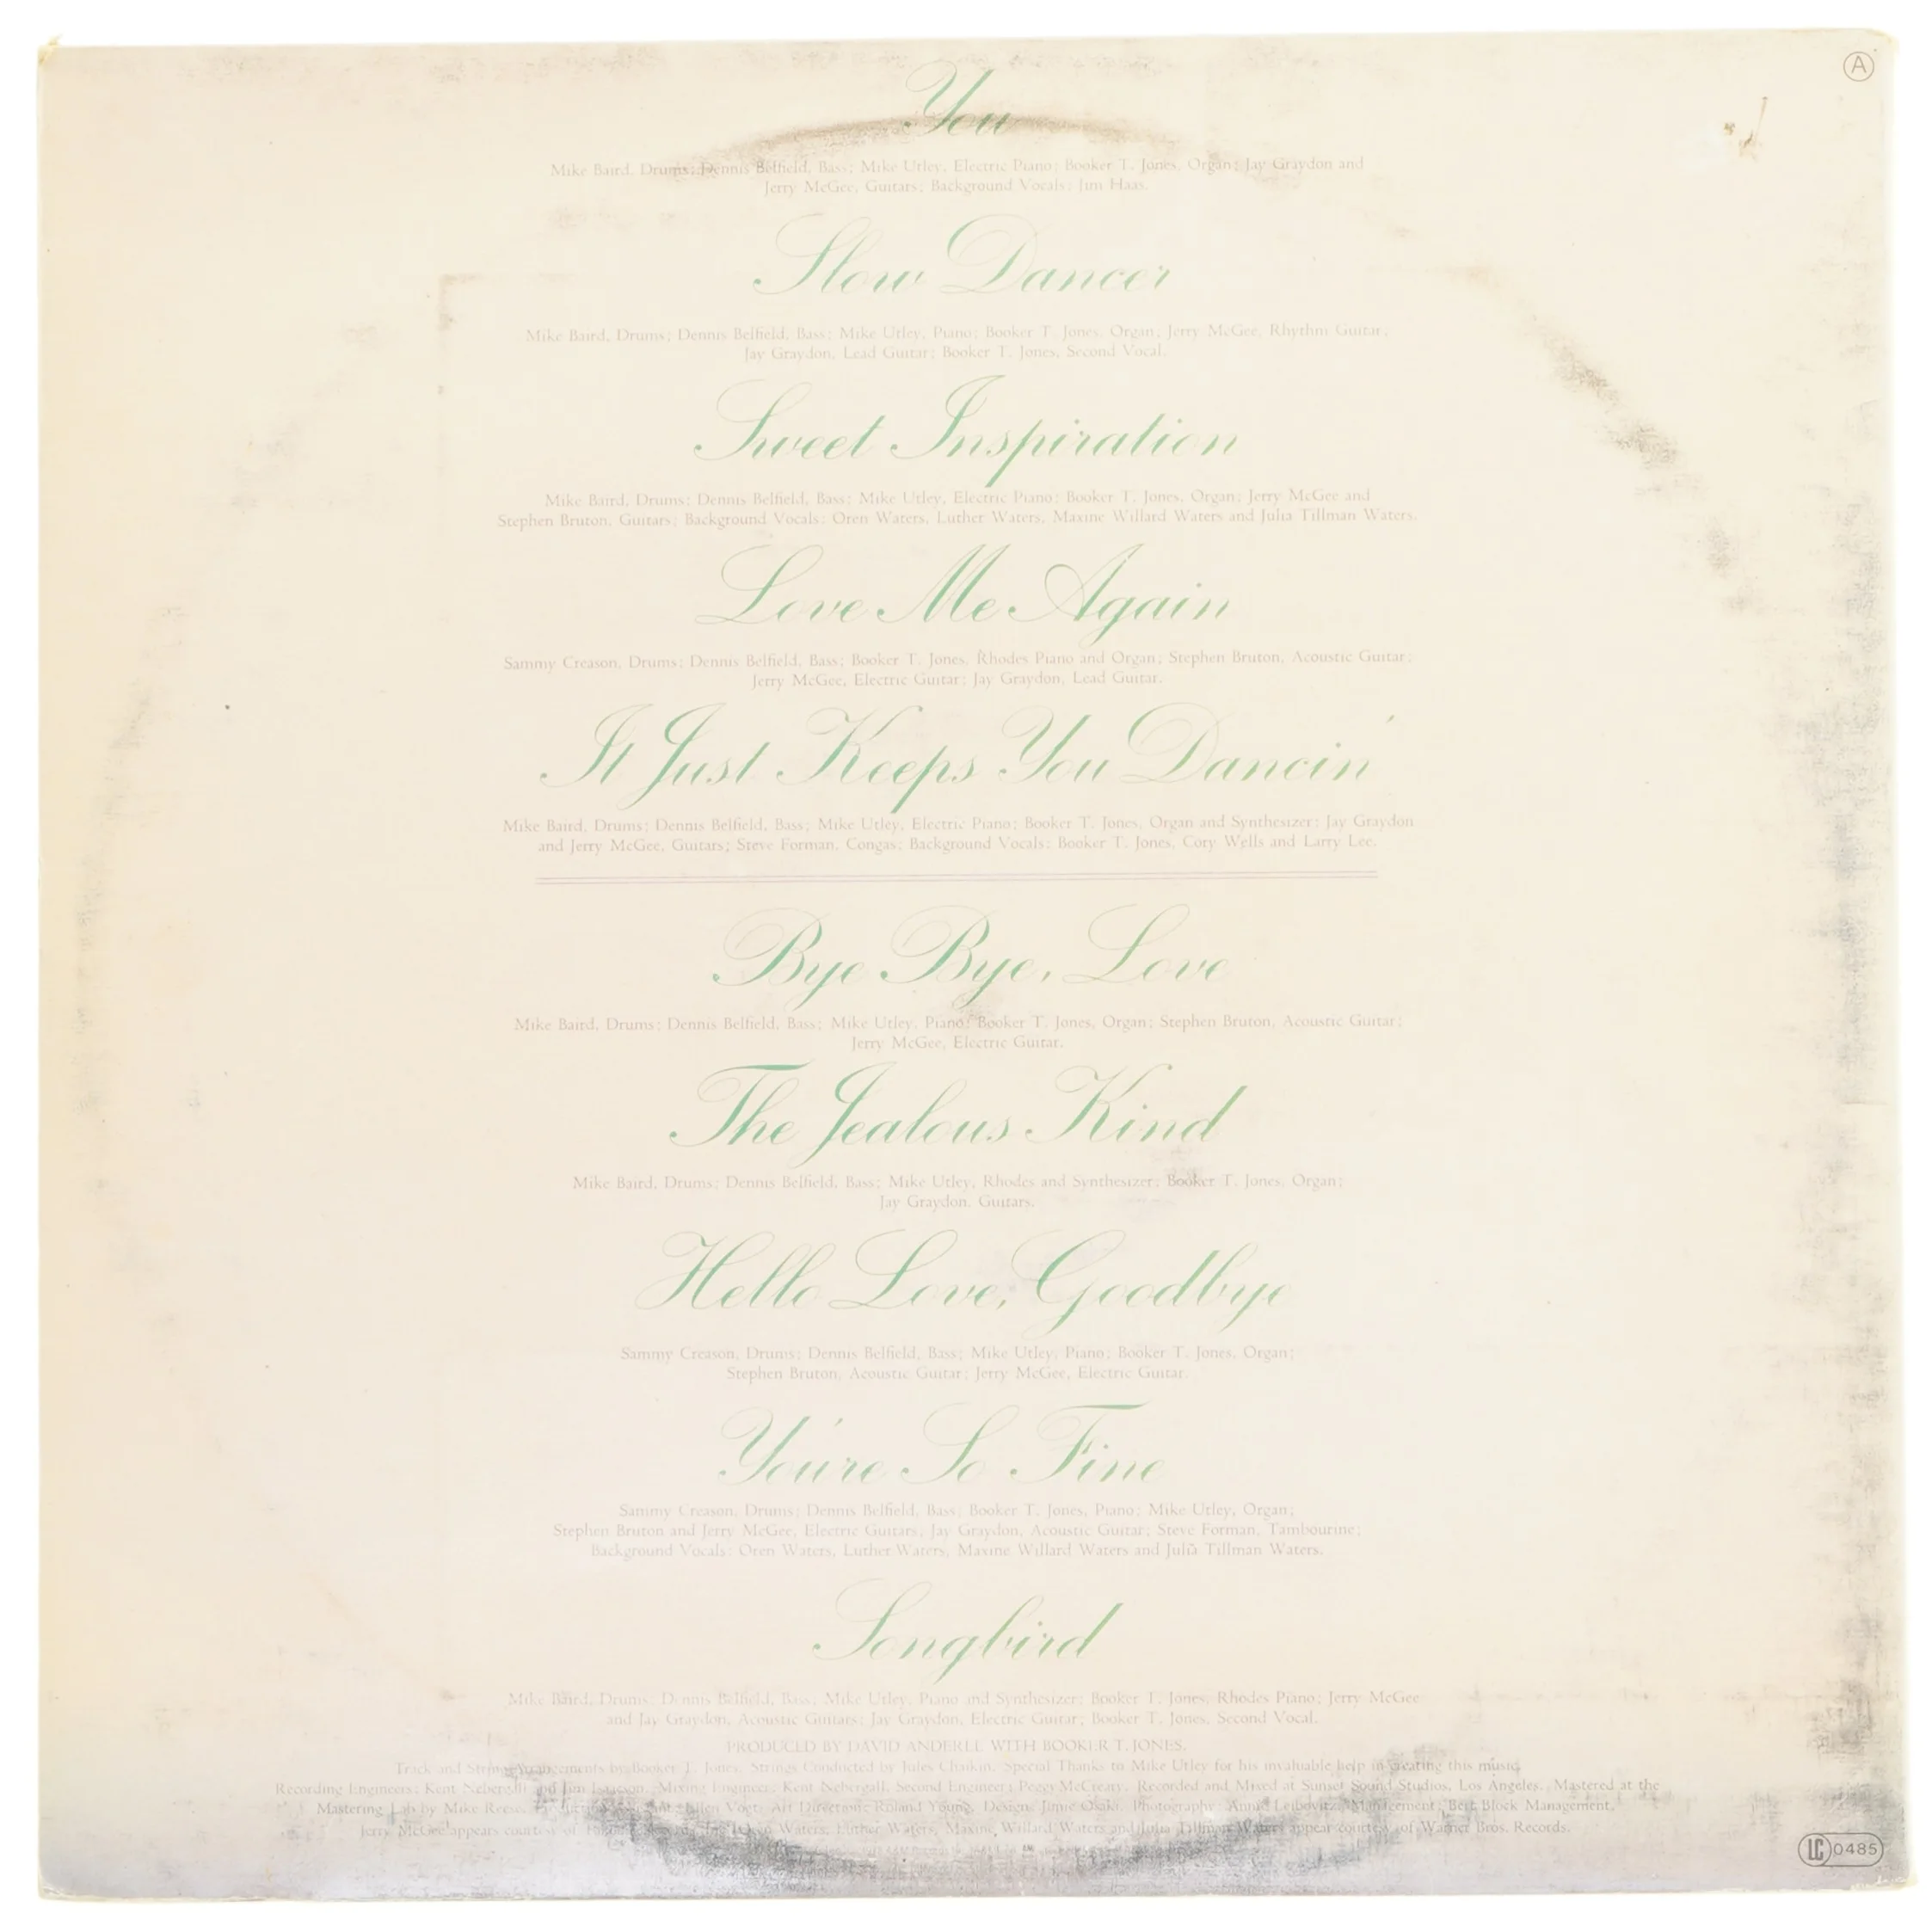 A
You
Mike Baird, Drums; Dennis Belfield, Bass; Mike Utley, Electric Piano; Booker T. Jones, Organ; Jay Graydon and
Jerry McGee, Guitars; Background Vocals: Jim Haas.
Slow Dancer
Mike Baird, Drums; Dennis Belfield, Bass; Mike Utley, Piano; Booker T. Jones, Organ; Jerry McGee, Rhythm Guitar;
Jay Graydon, Lead Guitar; Booker T. Jones, Second Vocal.
Sweet Inspiration
Mike Baird, Drums; Dennis Belfield, Bass; Mike Utley, Electric Piano; Booker T. Jones, Organ; Jerry McGee and
Stephen Bruton, Guitars; Background Vocals: Oren Waters, Luther Waters, Maxine Willard Waters and Julia Tillman Waters.
Love Me Again
Sammy Creason, Drums; Dennis Belfield, Bass; Booker T. Jones, Rhodes Piano and Organ; Stephen Bruton, Acoustic Guitar;
Jerry McGee, Electric Guitar; Jay Graydon, Lead Guitar.
It Just Keeps You Dancin'
Mike Baird, Drums; Dennis Belfield, Bass; Mike Utley, Electric Piano; Booker T. Jones, Organ and Synthesizer; Jay Graydon
and Jerry McGee, Guitars; Steve Forman, Congas; Background Vocals: Booker T. Jones, Cory Wells and Larry Lee.
Bye Bye, Love
Mike Baird, Drums; Dennis Belfield, Bass; Mike Utley, Piano; Booker T. Jones, Organ; Stephen Bruton, Acoustic Guitar;
Jerry McGee, Electric Guitar.
The Jealous Kind
Mike Baird, Drums; Dennis Belfield, Bass; Mike Utley, Rhodes and Synthesizer; Booker T. Jones, Organ;
Jay Graydon, Guitars.
Hello Love, Goodbye
Sammy Creason, Drums; Dennis Belfield, Bass; Mike Utley, Piano; Booker T. Jones, Organ;
Stephen Bruton, Acoustic Guitar; Jerry McGee, Electric Guitar.
You're So Fine
Sammy Creason, Drums; Dennis Belfield, Bass; Booker T. Jones, Piano; Mike Utley, Organ;
Stephen Bruton and Jerry McGee, Electric Guitars; Jay Graydon, Acoustic Guitar; Steve Forman, Tambourine;
Background Vocals: Oren Waters, Luther Waters, Maxine Willard Waters and Julia Tillman Waters.
Songbird
Mike Baird, Drums; Dennis Belfield, Bass; Mike Utley, Piano and Synthesizer; Booker T. Jones, Rhodes Piano; Jerry McGee
and Jay Graydon, Acoustic Guitars; Jay Graydon, Electric Guitar; Booker T. Jones, Second Vocal.
PRODUCED BY DAVID ANDERLE WITH BOOKER T. JONES.
Track and String Arrangements by Booker T. Jones. Strings Conducted by Jules Chaikin. Special Thanks to Mike Utley for his invaluable help in creating this music.
Recording Engineers: Kent Nebergall and Jim Isaacson. Mixing Engineer: Kent Nebergall. Second Engineer: Peggy McCreary. Recorded and Mixed at Sunset Sound Studios, Los Angeles. Mastered at the
Mastering Lab by Mike Reese. Ellen Vogt. Art Direction: Roland Young. Design: Junie Osaki. Photography: Annie Leibovitz. Management: Bert Block Management.
Jerry McGee appears courtesy of Waters, Luther Waters, Maxine Willard Waters and Julia Tillman Waters appear courtesy of Warner Bros. Records.
LC 0485